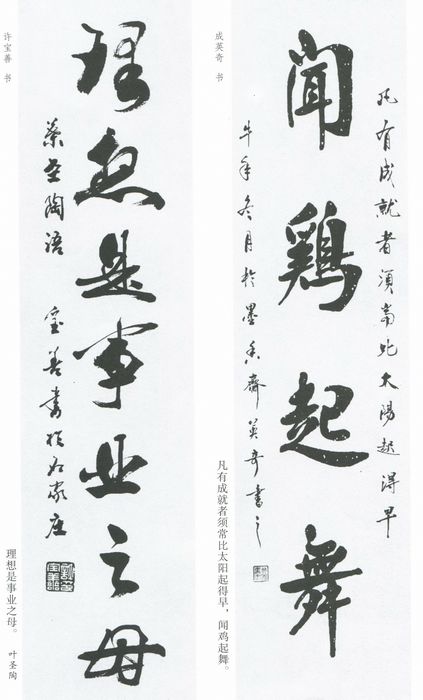 成英奇 书
凡有成就者须常比太阳起得早
闻鸡起舞
牛年冬月于墨香斋英奇书之
凡有成就者须常比太阳起得早，闻鸡起舞。
许宝善 书
理想是事业之母
叶圣陶语 宝善书于
理想是事业之母。 叶圣陶